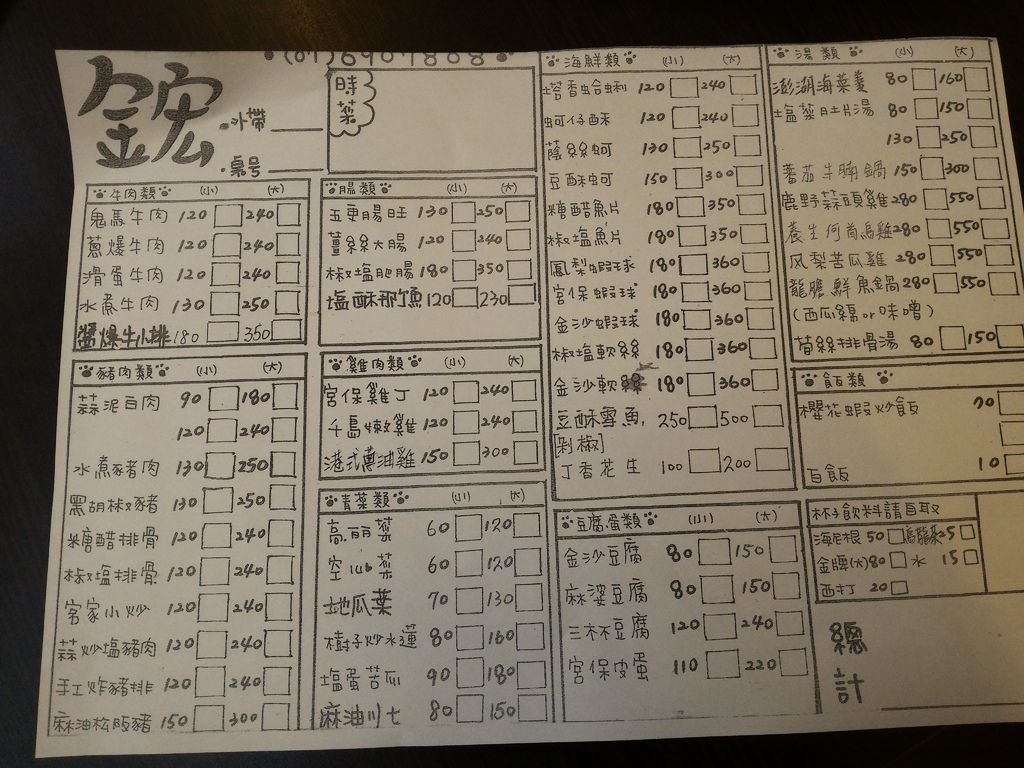 鋐
•外帶
•桌号
時菜
牛肉類 (小) (大)
鬼馬牛肉 120 240
蔥爆牛肉 120 240
滑蛋牛肉 120 240
水煮牛肉 130 250
醬爆牛小排 180 350
豬肉類 (小) (大)
蒜泥白肉 90 180
120 240
水煮豬肉 130 250
黑胡椒豬 130 250
糖醋排骨 120 240
椒塩排骨 120 240
客家小炒 120 240
蒜炒塩豬肉 120 240
手工炸豬排 120 240
麻油松阪豬 150 300
腸類 (小) (大)
五更腸旺 130 250
薑絲大腸 120 240
椒塩肥腸 180 350
塩酥那個魚 120 230
雞肉類 (小) (大)
宮保雞丁 120 240
千島嫩雞 120 240
港式蔥油雞 150 300
青菜類 (小) (大)
高丽菜 60 120
空心菜 60 120
地瓜葉 70 130
樹子炒水蓮 80 160
塩蛋苦瓜 90 180
麻油川七 80 150
海鮮類 (小) (大)
塔香蛤蜊 120 240
蚵仔酥 120 240
蔭絲蚵 130 250
豆酥蚵 150 300
糖醋魚片 180 350
椒塩魚片 180 350
鳳梨蝦球 180 360
宮保蝦球 180 360
金沙蝦球 180 360
椒塩軟絲 180 360
金沙軟絲 180 360
豆酥雪魚 250 500
[剁椒]
丁香花生 100 200
豆腐蛋類 (小) (大)
金沙豆腐 80 150
麻婆豆腐 80 150
三杯豆腐 120 240
宮保皮蛋 110 220
湯類 (小) (大)
澎湖海菜羹 80 160
塩菜肚片湯 80 150
130 250
蕃茄牛腩鍋 150 300
鹿野蒜頭雞 280 550
養生何首烏雞 280 550
凤梨苦瓜雞 280 550
龍膽鮮魚鍋 280 550
(西瓜綿or味噌)
筍絲排骨湯 80 150
飯類
櫻花蝦炒飯 70
白飯 10
杯子飲料請自取
海尼根 50 烏龍茶 25
金牌(大) 80 水 15
西打 20
總計